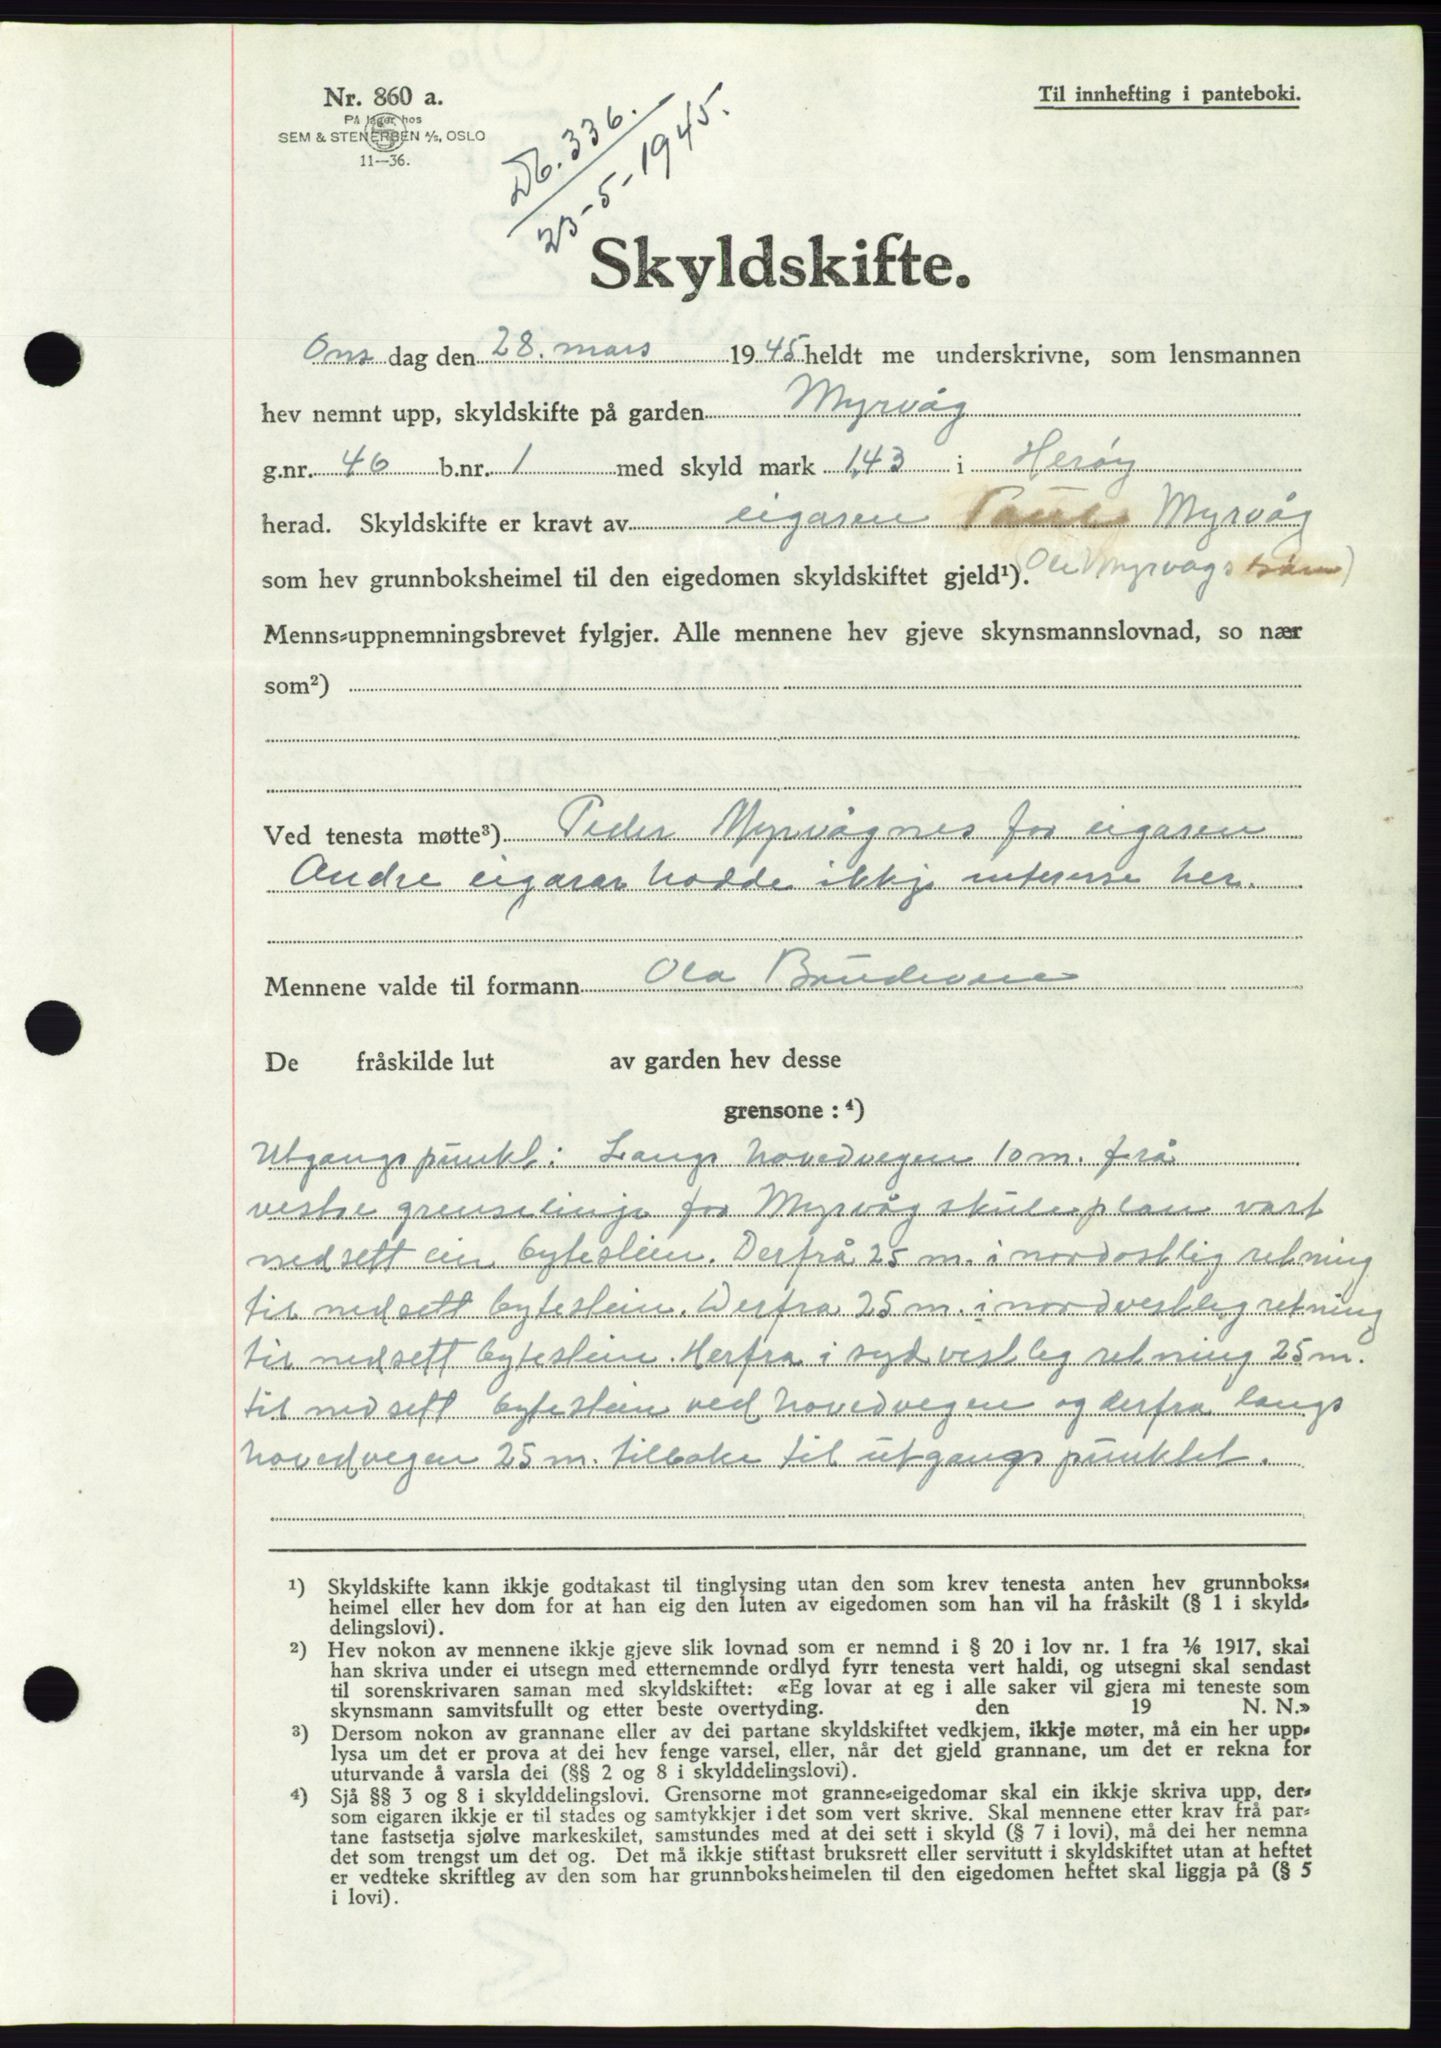 Nr. 860 a.
På lager hos
SEM & STENERSEN A/S, OSLO
11—36.
Til innhefting i panteboki.
Db. 336.
23-5-1945.
Skyldskifte.
Ons dag den 28. mars 1945 heldt me underskrivne, som lensmannen
hev nemnt upp, skyldskifte på garden Myrvåg
g.nr. 46 b.nr. 1 med skyld mark 1,43 i Herøy
herad. Skyldskifte er kravt av eigaren Paul Myrvåg
som hev grunnboksheimel til den eigedomen skyldskiftet gjeld¹). (Ole Myrvågs
Menns-uppnemningsbrevet fylgjer. Alle mennene hev gjeve skynsmannslovnad, so nær
som²)
Ved tenesta møtte³) Peder Myrvågnes for eigaren
Andre eigarar hadde ikkje interesse her.
Mennene valde til formann Ola
De fråskilde lut av garden hev desse
grensone : ⁴)
Utgangspunkt: Langs hovedvegen 10 m. frå
vestre grenselinje for Myrvåg skuleplan vart
nedsett ein bytestein. Derfrå 25 m. i nordostlig retning
til nedsett bytestein. Derfra 25 m. i nordvestleg retning
til nedsett bytestein. Herfra i sydvestleg retning 25 m.
til nedsett bytestein ved hovedvegen og derfra langs
hovedvegen 25 m. tilbake til utgangspunktet.
¹) Skyldskifte kann ikkje godtakast til tinglysing utan den som krev tenesta anten hev grunnboks-
heimel eller hev dom for at han eig den luten av eigedomen som han vil ha fråskilt (§ 1 i skyld-
delingslovi).
²) Hev nokon av mennene ikkje gjeve slik lovnad som er nemnd i § 20 i lov nr. 1 fra 1/6 1917, skal
han skriva under ei utsegn med etternemnde ordlyd fyrr tenesta vert haldi, og utsegni skal sendast
til sorenskrivaren saman med skyldskiftet: «Eg lovar at eg i alle saker vil gjera mi teneste som
skynsmann samvitsfullt og etter beste overtyding. den 19 N. N.»
³) Dersom nokon av grannane eller av dei partane skyldskiftet vedkjem, ikkje møter, må ein her upp-
lysa um det er prova at dei hev fenge varsel, eller, når det gjeld grannane, um det er rekna for
uturvande å varsla dei (§§ 2 og 8 i skylddelingslovi).
⁴) Sjå §§ 3 og 8 i skylddelingslovi. Grensorne mot granne-eigedomar skal ein ikkje skriva upp, der-
som eigaren ikkje er til stades og samtykkjer i det som vert skrive. Skal mennene etter krav frå par-
tane fastsetja sjølve markeskilet, samstundes med at dei sett i skyld (§ 7 i lovi), må dei her nemna
det som trengst um det og. Det må ikkje stiftast bruksrett eller servitutt i skyldskiftet utan at heftet
er vedteke skriftleg av den som har grunnboksheimelen til den eigedomen heftet skal liggja på (§ 5
i lovi).